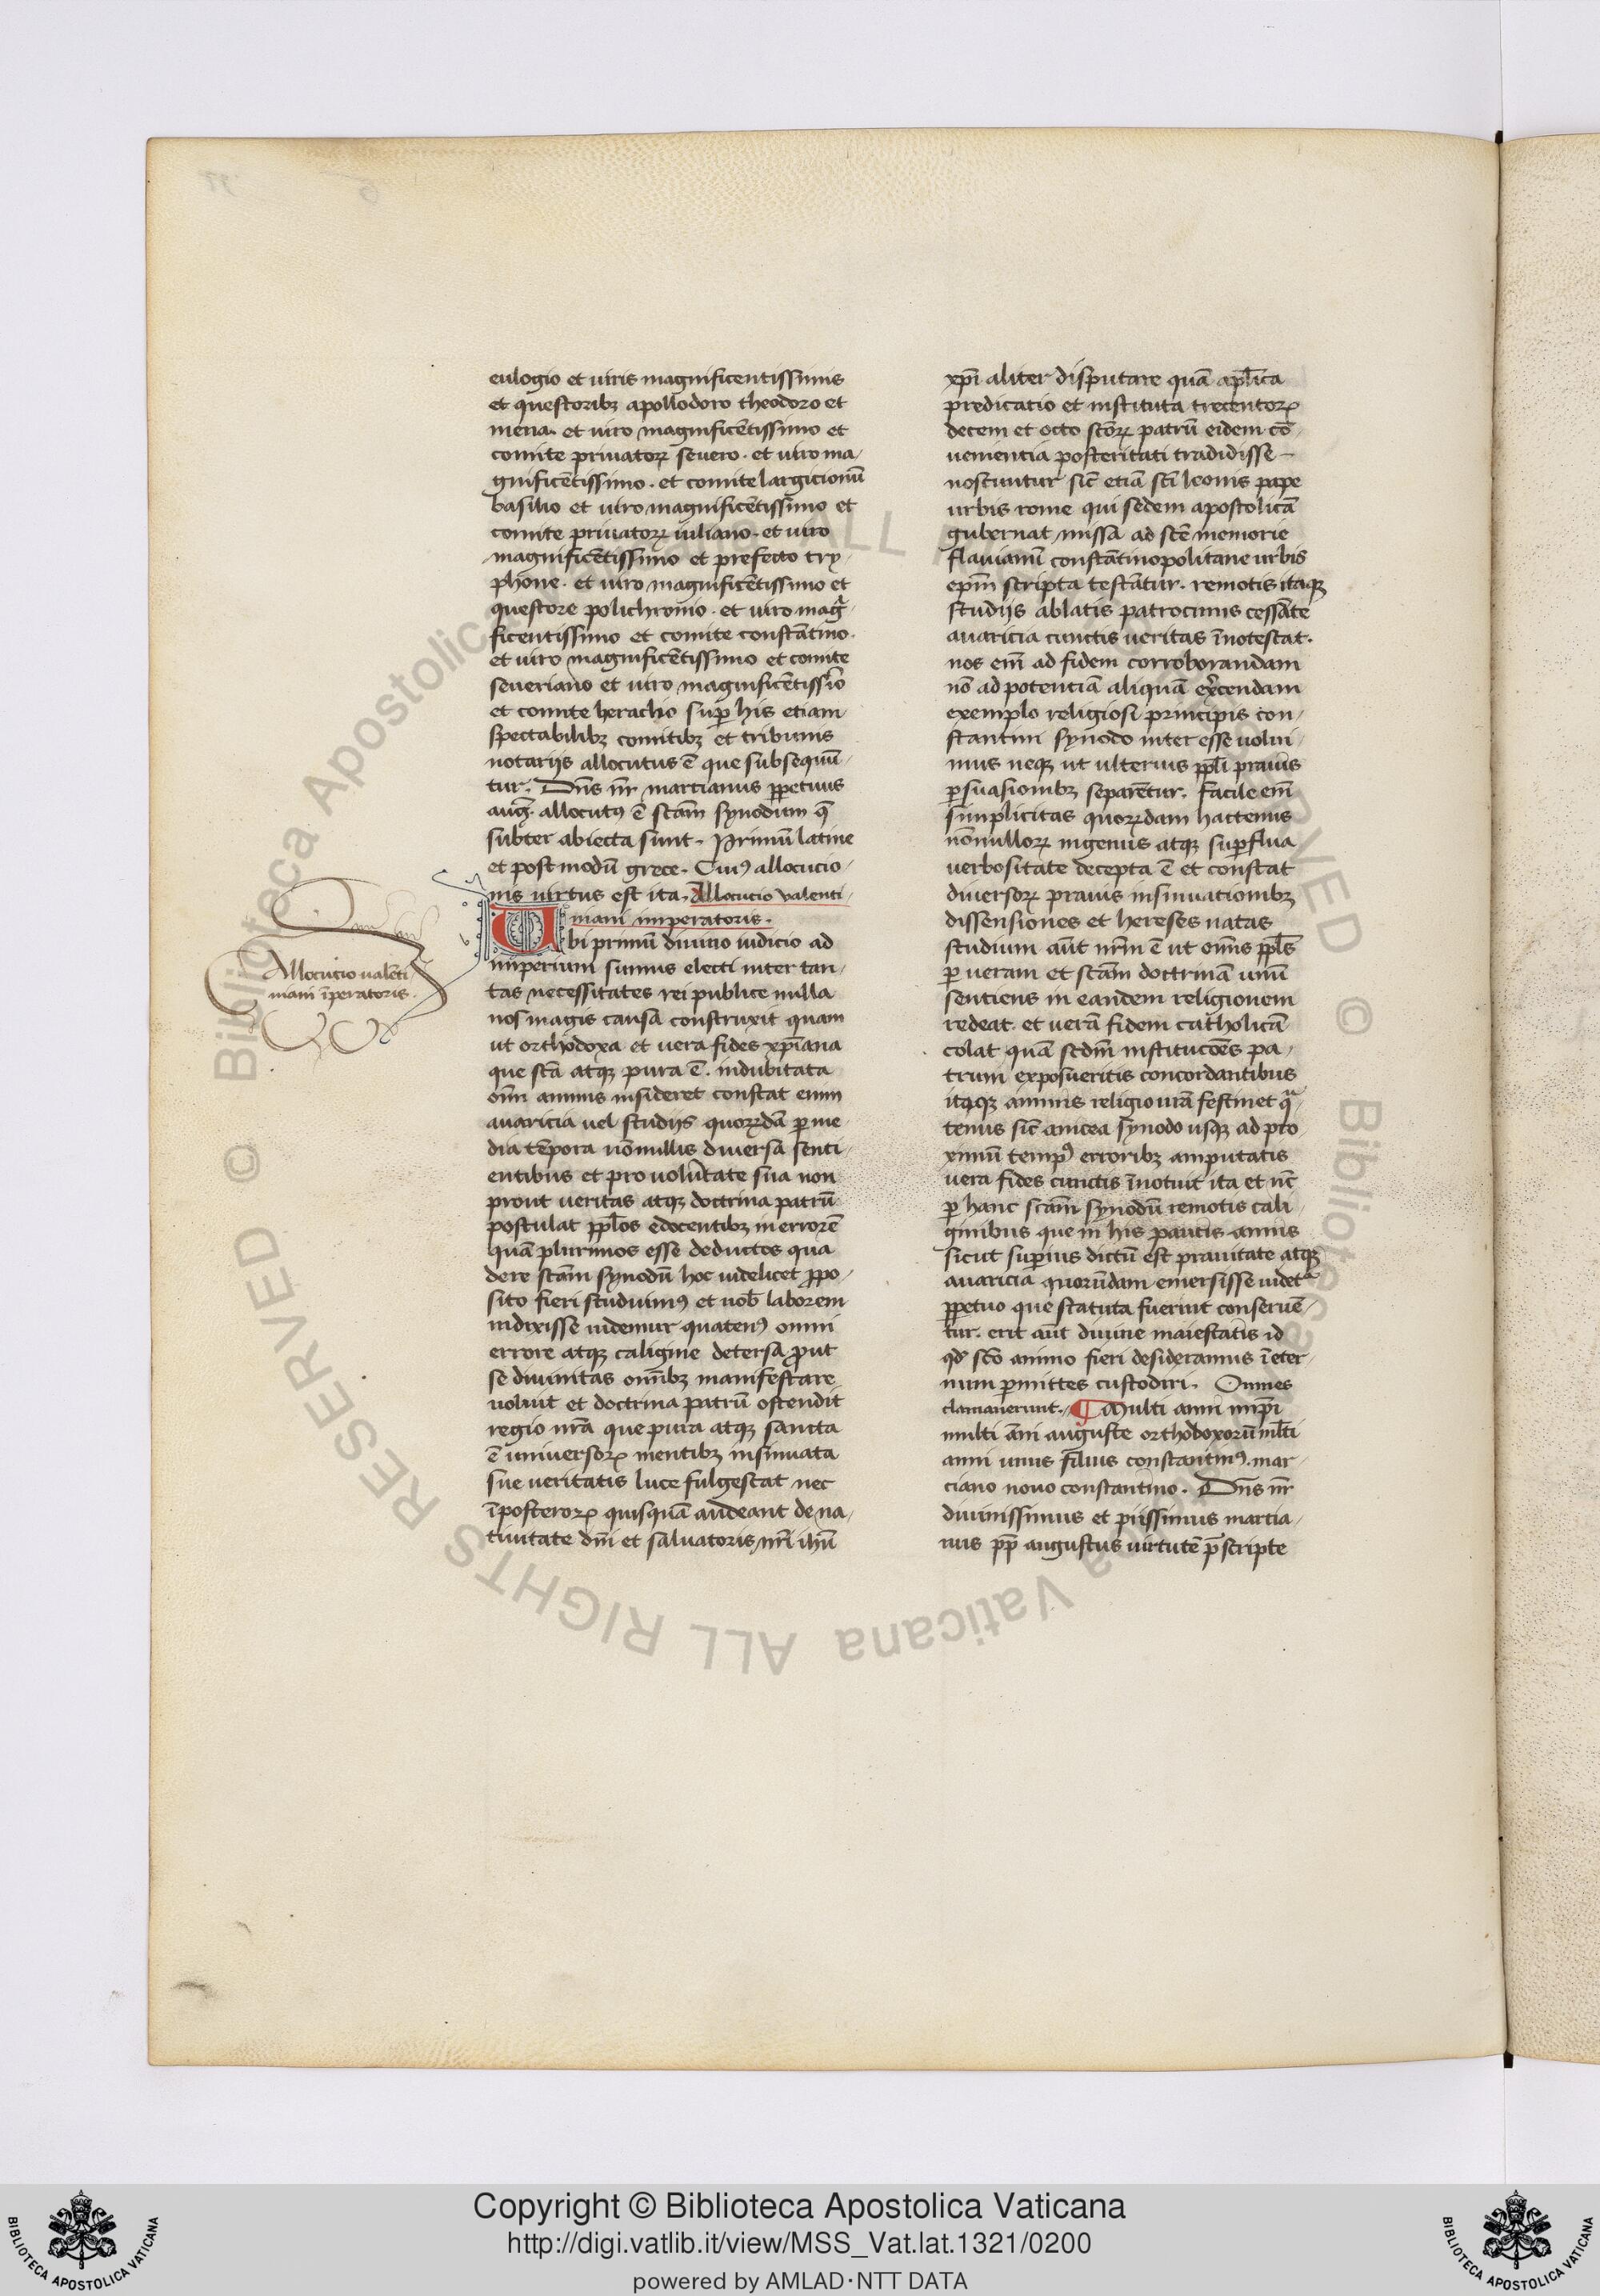 eulogio et uiris magnificentissimis
et questoribꝫ apollodoro theodoro et
mena· et uiro magnificētissimo et
comite priuatoꝝ seuero· et uiro ma
gnificētissimo· et comite largicionū
basilio et uiro magnificētissimo et
comite priuatoꝝ iuliano· et uiro
magnificētissimo et prefecto try
phone· et uiro magnificētissimo et
questore polichronio· et uiro magͥ
ficentissimo et comite constātino·
et uiro magnificētissimo et comite
seueriano et uiro magnificētissīo
et comite heraclio suꝑ his etiam
spectabilibꝫ comitibꝫ et tribunis
notarijs allocutus ē que subsequū
tur· Dn̄s nr̄ martianus ꝑpetuus
auḡ· allocutꝰ ē sc̄am synodum q̄
subter abiecta sunt· Primū latine
et postmodū grece· Cuiꝰ allocucio
nis uirtus est ita· Allocucio valenti
niani imperatoris·
Ubi primū diuino iudicio ad
imperium sumus electi inter tan
tas necessitates rei publice nulla
nos magis causa construxit quam
ut orthodoxa et uera fides xp̄iana
que sc̄a atqꝫ pura ē· indubitata
om̄i animis insideret constat enim
auaricia uel studijs quoꝝdā ꝑ me
dia tēpora nōnullis diuersa senti
entibus et pro volūtate sua non
prout ueritas atqꝫ doctrina patrū
postulat ppl̄os edocentibꝫ in errorē
quā plurimos esse deductos qua
de re sc̄am synodū hoc uidelicet ꝓpo
sito fieri studuimꝰ et uob̄ laborem
indixisse uidemur quatenꝰ omni
errore atqꝫ caligine detersa ꝓut
se diuinitas omībꝫ manifestare
uoluit et doctrina patrū ostendit
regio nr̄a que pura atqꝫ sancta
ē uniuersoꝝ mentibꝫ insinuata
sue ueritatis luce fulgescat nec
īposteroꝝ quisquā audeant de na
tiuitate dn̄i et saluatoris nr̄i ihū
Allocutio ualēti
niani īperatoris·
xp̄i aliter disputare quā apl̄ica
predicatio et instituta trecentoꝝ
decem et octo sc̄oꝝ patrū eidem cō
uenientia posteritati tradidisse
noscuntur sic̄ etiā sc̄i leonis pape
urbis rome qui sedem apostolicā
gubernat missa ad sc̄e memorie
flauianū constātinopolitane urbis
ep̄m scripta testātur· remotis itaqꝫ
studijs ablatis patrocinis cessāte
auaricia cunctis ueritas īnotescat·
nos em̄ ad fidem corroborandam
nō ad potenciā aliquā ex̄cendam
exemplo religiosi principis con
stantini synodo inter esse uolui
mus neqꝫ ut ulterius ppl̄i prauis
ꝑsuasionibꝫ separētur· facile em̄
simplicitas quoꝝdam hactenus
nōnulloꝝ ingenus atqꝫ suꝑflua
uerbositate decepta ē et constat
diuersoꝝ prauis insinuationibꝫ
dissensiones et hereses natas
studium aūt nr̄m ē ut om̄is ppl̄s
ꝑ ueram et sc̄am doctrinā unū
sentiens in eandem religionem
redeat et uerā fidem catholicā
colat quā scdm̄ institucōes pa
trum exposueritis concordantibus
itaqꝫ animis religio ura festinet qͣ
tenus sic̄ anicea synodo usqꝫ ad pro
ximū tempꝰ erroribꝫ amputatis
uera fides cunctis īnotuit ita et nc̄
ꝑ hanc sc̄am synodū remotis cali
ginibus que in his paucis annis
sicut suꝑius dictū est prauitate atqꝫ
auaricia quorūdam emersisse uidetᷣ
ꝑpetuo que statuta fuerint conseruē
tur· erit aūt diuine maiestatis id
qd̄ sc̄o animo fieri desideramus ī eter
num ꝑmittes custodiri· Omnes
clamauerunt· ¶ Multi anni imp̄i
multi āni auguste orthodoxorū ml̄ti
anni unus filius constantinꝰ· mar
ciano nouo constantino· Dn̄s nr̄
diuinissimus et piissimus martia
nus pp̄ augustus uirtutē p̄scripte
Copyright © Biblioteca Apostolica Vaticana
http://digi.vatlib.it/view/MSS_Vat.lat.1321/0200
powered by AMLAD·NTT DATA
BIBLIOTECA APOSTOLICA VATICANA
BIBLIOTECA APOSTOLICA VATICANA
© Biblioteca Apostolica Vaticana ALL RIGHTS RESERVED